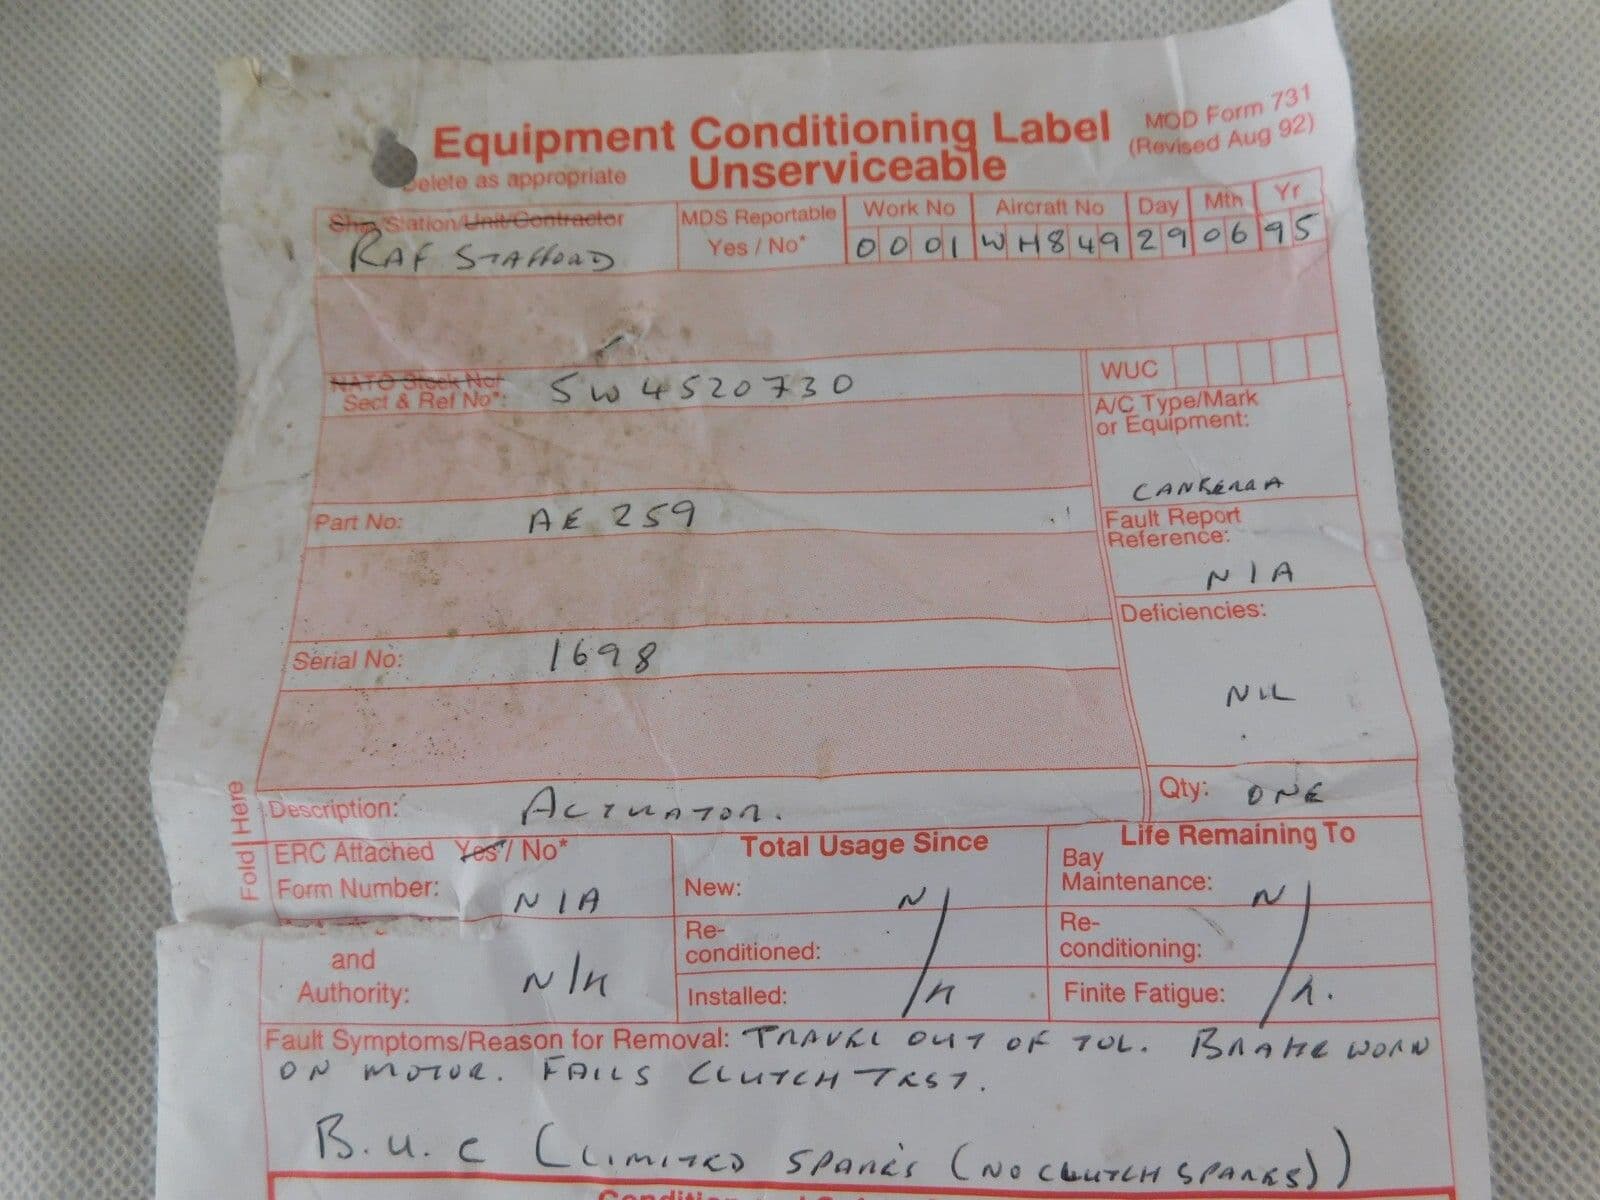 Equipment Conditioning Label
MOD Form 731
(Revised Aug 92)
Delete as appropriate
Unserviceable
Ship/Station/Unit/Contractor
RAF STAFFORD
MDS Reportable
Yes / No*
Work No
0001
Aircraft No
WH849
Day
29
Mth
06
Yr
95
NATO Stock No/
Sect & Ref No*: 5W 4520730
WUC
A/C Type/Mark
or Equipment:
CANBERRA
Part No: AE 259
Fault Report
Reference:
N/A
Serial No: 1698
Deficiencies:
NIL
Description: ACTUATOR.
Qty: ONE
Fold Here
ERC Attached Yes / No*
Form Number: N/A
and
Authority: N/A
Total Usage Since
New: N/
Re-
conditioned:
Installed: A
Life Remaining To
Bay
Maintenance: N/
Re-
conditioning:
Finite Fatigue: A.
Fault Symptoms/Reason for Removal: TRAVEL OUT OF TOL. BRAKE WORN
ON MOTOR. FAILS CLUTCH TEST.
B.U.C (LIMITED SPARES (NO CLUTCH SPARES))